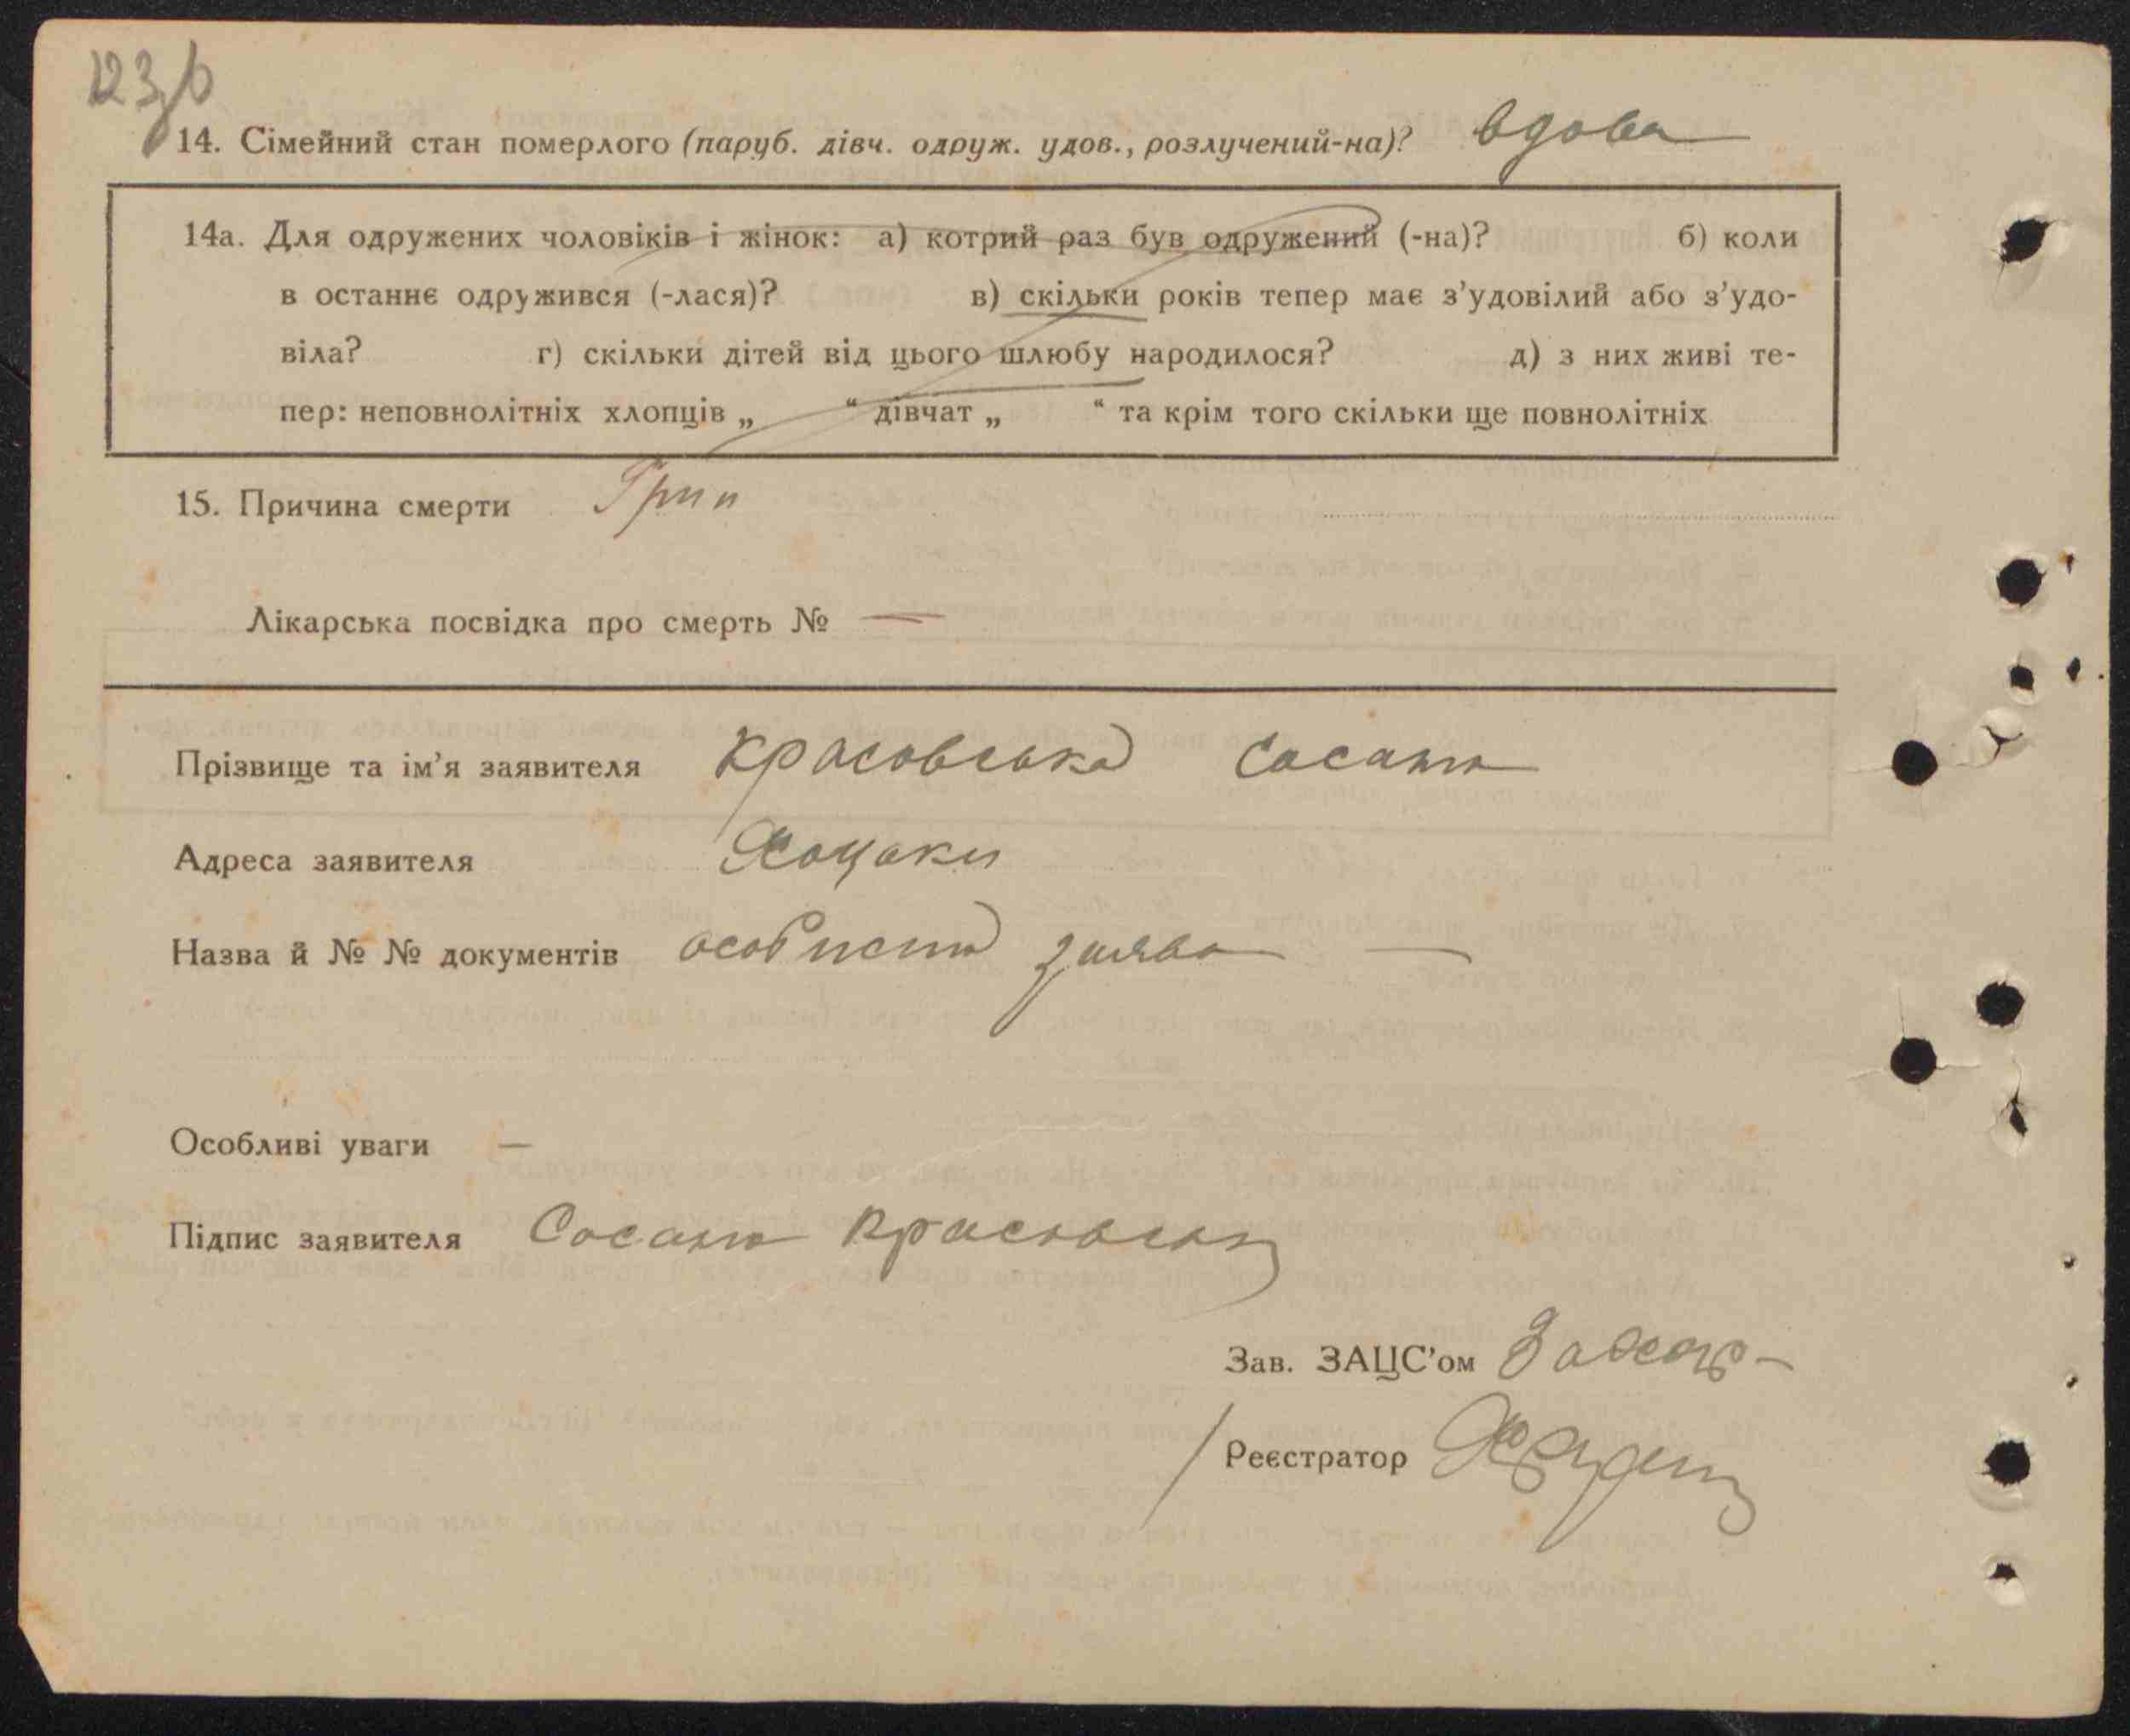 14. Сімейний стан померлого (паруб. дівч. одруж. удов., розлучений-на)? вдова
14а. Для одружених чоловіків і жінок: а) котрий раз був одружений (-на)? б) коли
в останнє одружився (-лася)? в) скільки років тепер має з’удовілий або з’удо-
віла? г) скільки дітей від цього шлюбу народилося? д) з них живі те-
пер: неповнолітніх хлопців „ “ дівчат „ “ та крім того скільки ще повнолітніх
15. Причина смерти Грип
Лікарська посвідка про смерть № —
Прізвище та ім’я заявителя Красовська
Адреса заявителя Хоцьки
Назва й № № документів особиста заява —
Особливі уваги —
Підпис заявителя
Зав. ЗАЦС’ом
Реєстратор